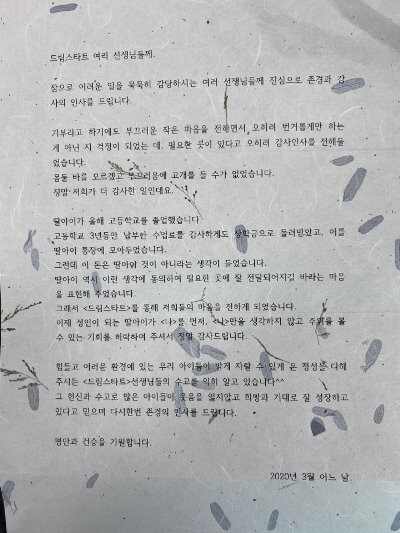 드림스타트 여러 선생님들께.
참으로 어려운 일을 묵묵히 감당하시는 여러 선생님들께 진심으로 존경과 감
사의 인사를 드립니다.
기부라고 하기에도 부끄러운 작은 마음을 전하면서, 오히려 번거롭게만 하는
게 아닌 지 걱정이 되었는 데, 필요한 곳이 있다고 오히려 감사인사를 전해들
었습니다.
몸둘 바를 모르겠고 부끄러움에 고개를 들 수가 없었습니다.
정말 저희가 더 감사한 일인데요.
딸아이가 올해 고등학교를 졸업했습니다.
고등학교 3년동안 납부한 수업료를 감사하게도 장학금으로 돌려받았고, 이를
딸아이 통장에 모아두었습니다.
그런데 이 돈은 딸아이 것이 아니라는 생각이 들었습니다.
딸아이 역시 이런 생각에 동의하여 필요한 곳에 잘 전달되어지길 바라는 마음
을 표현해 주었습니다.
그래서 <드림스타트>를 통해 저희들의 마음을 전하게 되었습니다.
이제 성인이 되는 딸아이가 <나>를 먼저, <나>만을 생각하지 않고 주변을 볼
수 있는 기회를 허락하여 주셔서 정말 감사드립니다.
힘들고 어려운 환경에 있는 우리 아이들이 밝게 자랄 수 있게 온 정성을 다해
주시는 <드림스타트>선생님들의 수고를 익히 알고 있습니다^^
그 헌신과 수고로 많은 아이들이 웃음을 잃지않고 희망과 기대로 잘 성장하고
있다고 믿으며 다시한번 존경의 인사를 드립니다.
평안과 건승을 기원합니다.
2020년 3월 어느 날.